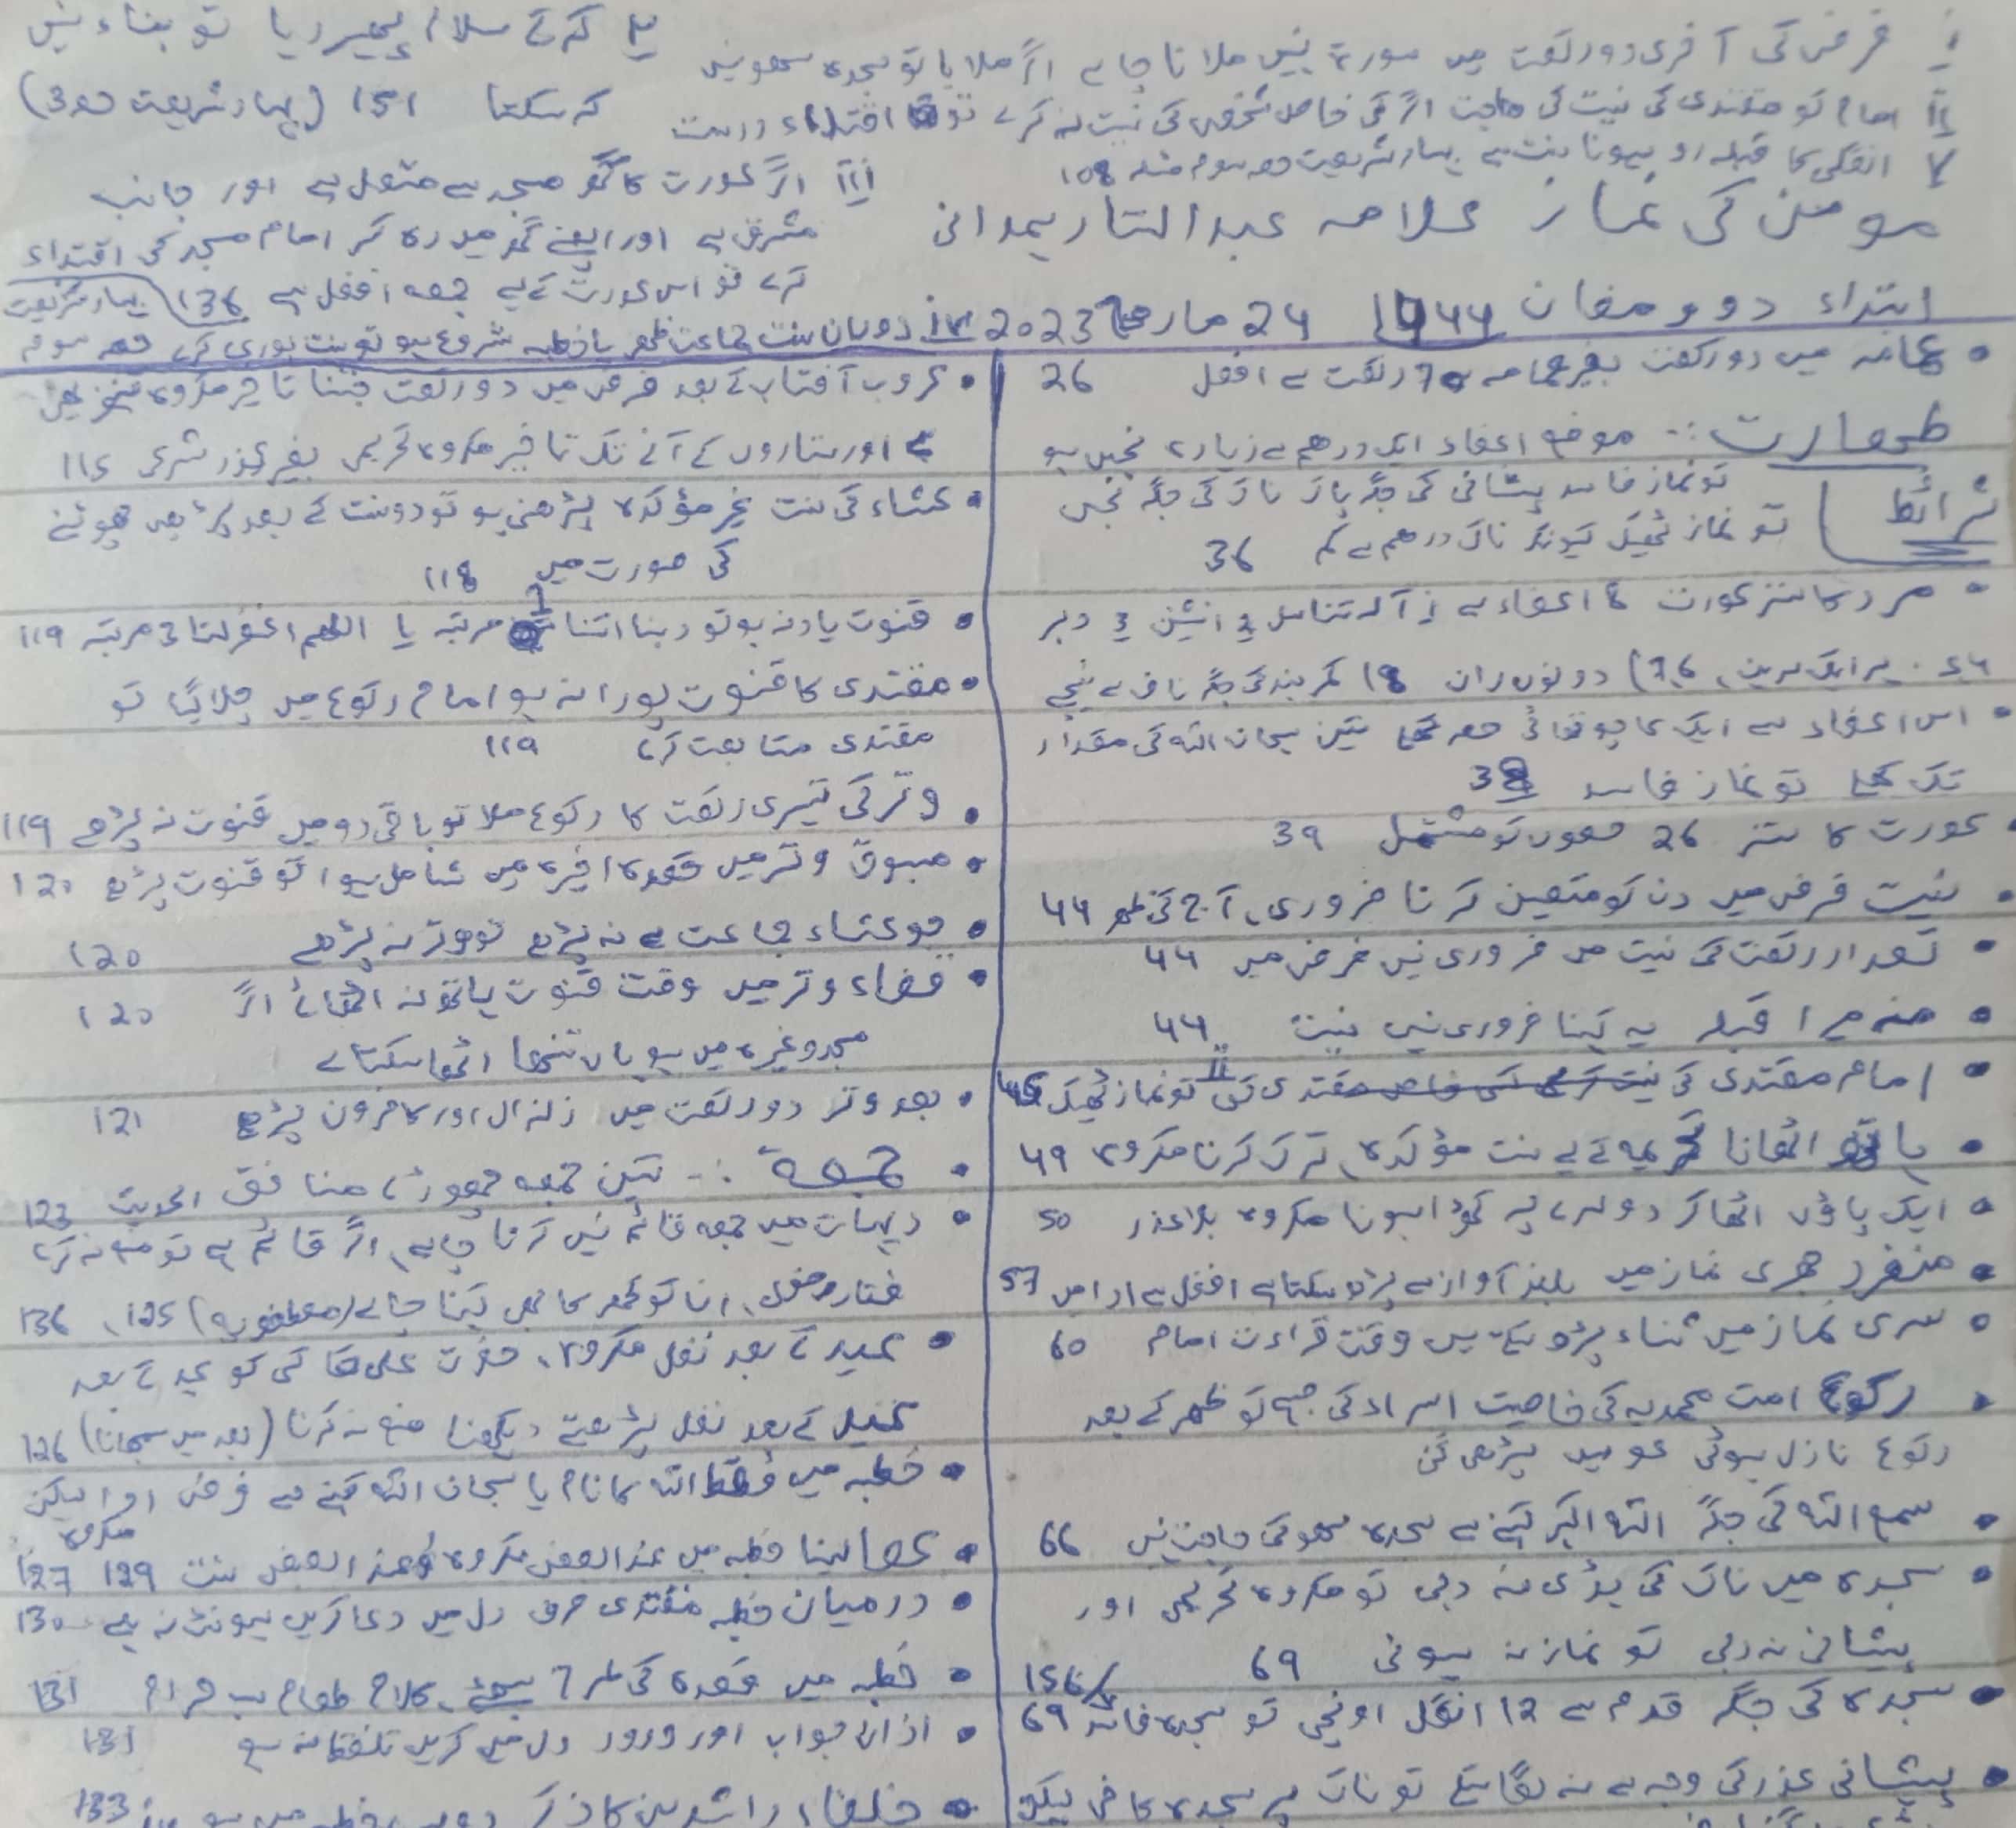 i فرض کی آخری دو رکعت میں سورۃ نہیں ملانا چاہے اگر ملایا تو سجدہ سھو نہیں
ii امام کو مقتدی کی نیت کی حاجت اگر کی خاص شخص کی نیت نہ کرے تو اقتداء درست
v انگلی کا قبلہ رو ہونا سنت ہے بہار شریعت حصہ سوم مسئلہ 108
مومن کی نماز علامہ عبدالستار ہمدانی
ابتداء دو رمضان 1444 24 مارچ 2023
کرکے سلام پھیر دیا تو بناء نہیں
کر سکتا 151 (بہار شریعت حصہ 3)
iii اگر عورت کا گھر مسجد سے متصل ہے اور جانب
مشرق ہے اور اپنے گھر میں رہ کر امام مسجد کی اقتداء
کرے تو اس عورت کے لیے جمعہ افضل ہے 136 بہار شریعت
iv دوران سنت جماعت ظھر یا خطبہ شروع ہو تو سنت پوری کرے حصہ سوم
• عمامہ میں دو رکعت بغیر عمامہ 70 رکعت سے افضل 26
طھارت :- موضع اعضاء ایک درھم سے زیادہ نجس ہو
شرائط تو نماز فاسد پیشانی کی جگہ پاک ناک کی جگہ نجس
تو نماز ٹھیک کیونکہ ناک درھم سے کم 36
• مرد کا ستر عورت 8 اعضاء ہے 1 آلہ تناسل 2 انثیین 3 دبر
4،5 ہر ایک سرین، 6،7) دونوں ران 8) کمر بند کی جگہ ناف سے نیچے
• اس اعضاء سے ایک کا چوتھائی حصہ کھلا تین سبحان اللہ کی مقدار
تک کھلا تو نماز فاسد 38
• عورت کا ستر 26 حصوں کو مشتمل 39
• نیت فرض میں دن کو متعین کرنا ضروری، آج کی ظھر 44
• تعداد رکعت کی نیت ضروری نہیں فرض میں 44
• منہ میرا قبلہ یہ کہنا ضروری نہیں نیت 44
• امام مقتدی کی نیت مقتدی کی تو نماز ٹھیک 45
• ہاتھ اٹھانا تحریمہ کے لیے سنت مؤکدہ، ترک کرنا مکروہ 49
• ایک پاؤں اٹھا کر دوسرے پر کھڑا ہونا مکروہ بلا عذر 50
• منفرد جھری نماز میں بلند آواز سے پڑھ سکتا ہے افضل ہے ادا میں 57
• سری نماز میں ثناء پڑھ سکتے ہیں وقت قراءت امام 60
• رکوع امت محمدیہ کی خاصیت اسراء کی صبح کو ظھر کے بعد
رکوع نازل ہوئی پڑھی گئی
• سمع اللہ کی جگہ اللہ اکبر کہنے سے سجدہ سھو کی حاجت نہیں 66
• سجدہ میں ناک کی ہڈی نہ دبی تو مکروہ تحریمی اور
پیشانی نہ دبی تو نماز نہ ہوئی 69
• سجدہ کی جگہ قدم سے 12 انگل اونچی تو سجدہ فاسد 69 / 156
• پیشانی عذر کی وجہ سے نہ لگا سکے تو ناک پر سجدہ کافی لیکن
• غروب آفتاب کے بعد فرض میں دو رکعت جتنا تاخیر مکروہ تنزیھی
ہے اور ستاروں کے آنے تک تاخیر مکروہ تحریمی بغیر عذر شرعی 115
• عشاء کی سنت غیر مؤکدہ پڑھنی ہو تو دو سنت کے بعد پڑھیں چھوٹنے
کی صورت میں 118
• قنوت یاد نہ ہو تو ربنا اتنا 1 مرتبہ یا اللھم اغفرلنا 3 مرتبہ 119
• مقتدی کا قنوت پورا نہ ہو امام رکوع میں چلا گیا تو
مقتدی متابعت کرے 119
• وتر کی تیسری رکعت کا رکوع ملا تو باقی دو میں قنوت نہ پڑھے 119
• مسبوق وتر میں قعدہ اخیرہ میں شامل ہوا تو قنوت پڑھے 120
• جو عشاء جماعت سے نہ پڑھے تو وتر نہ پڑھے 120
• قضاء وتر میں وقت قنوت ہاتھ نہ اٹھائے اگر 120
مسجد وغیرہ میں ہو ہاں تنھا اٹھا سکتا ہے
• بعد وتر دو رکعت میں زلزال اور کافرون پڑھے 121
• جمعہ :- تین جمعہ چھوڑے، منافق الحدیث 123
• دیہات میں جمعہ قائم نہیں کرنا چاہے، اگر قائم ہے تو منع نہ کرے
ظھر کا بھی کہنا جائے 125، 136
• عید کے بعد نفل مکروہ، حضرت علی کا کسی کو عید کے بعد
نفل پڑھتے دیکھنا منع نہ کرنا (بعد میں سمجھانا) 126
• خطبہ میں فقط اللہ کا نام یا سبحان اللہ کہنے سے فرض ادا لیکن
مکروہ
• عصا لینا خطبہ میں عند البعض مکروہ عند البعض سنت 129 127
• درمیان خطبہ مقتدی صرف دل میں دعا کریں ہونٹ نہ ہلے 130
• خطبہ میں قعدہ کی طرح بیٹھے، کلام طعام سب حرام 131
• اذان جواب اور درود دل میں کریں تلفظ نہ ہو 131
• خلفاء راشدین کا ذکر خطبہ میں 133